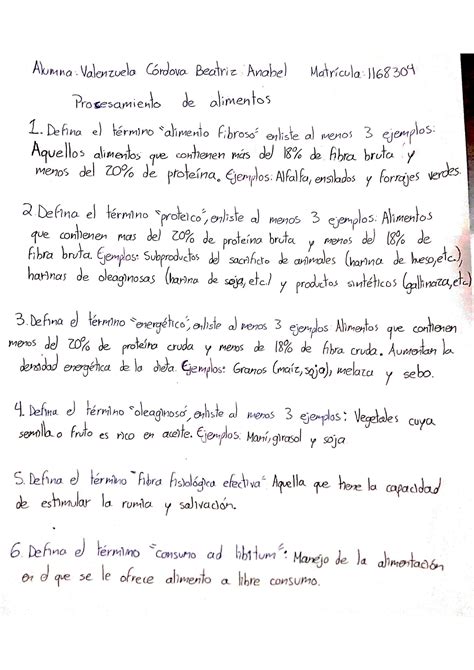 Alumna: Valenzuela Córdova Beatriz Anabel Matrícula: 1168304
Procesamiento de alimentos
1. Defina el término "alimento fibroso" enliste al menos 3 ejemplos:
Aquellos alimentos que contienen más del 18% de fibra bruta y
menos del 20% de proteína. Ejemplos: Alfalfa, ensilados y forrajes verdes.
2. Defina el término "proteico", enliste al menos 3 ejemplos: Alimentos
que contienen mas del 20% de proteína bruta y menos del 18% de
fibra bruta. Ejemplos: Subproductos del sacrificio de animales (harina de hueso, etc.),
harinas de oleaginosas (harina de soja, etc.) y productos sintéticos (gallinaza, etc.)
3. Defina el término "energético", enliste al menos 3 ejemplos Alimentos que contienen
menos del 20% de proteína cruda y menos de 18% de fibra cruda. Aumentan la
densidad energética de la dieta. Ejemplos: Granos (maíz, soja), melaza y sebo.
4. Defina el término "oleaginoso", enliste al menos 3 ejemplos: Vegetales cuya
semilla o fruto es rico en aceite. Ejemplos: Maní, girasol y soja
5. Defina el término "Fibra fisiológica efectiva" Aquella que tiene la capacidad
de estimular la rumia y salivación.
6. Defina el término "consumo ad libitum": Manejo de la alimentación
en el que se le ofrece alimento a libre consumo.